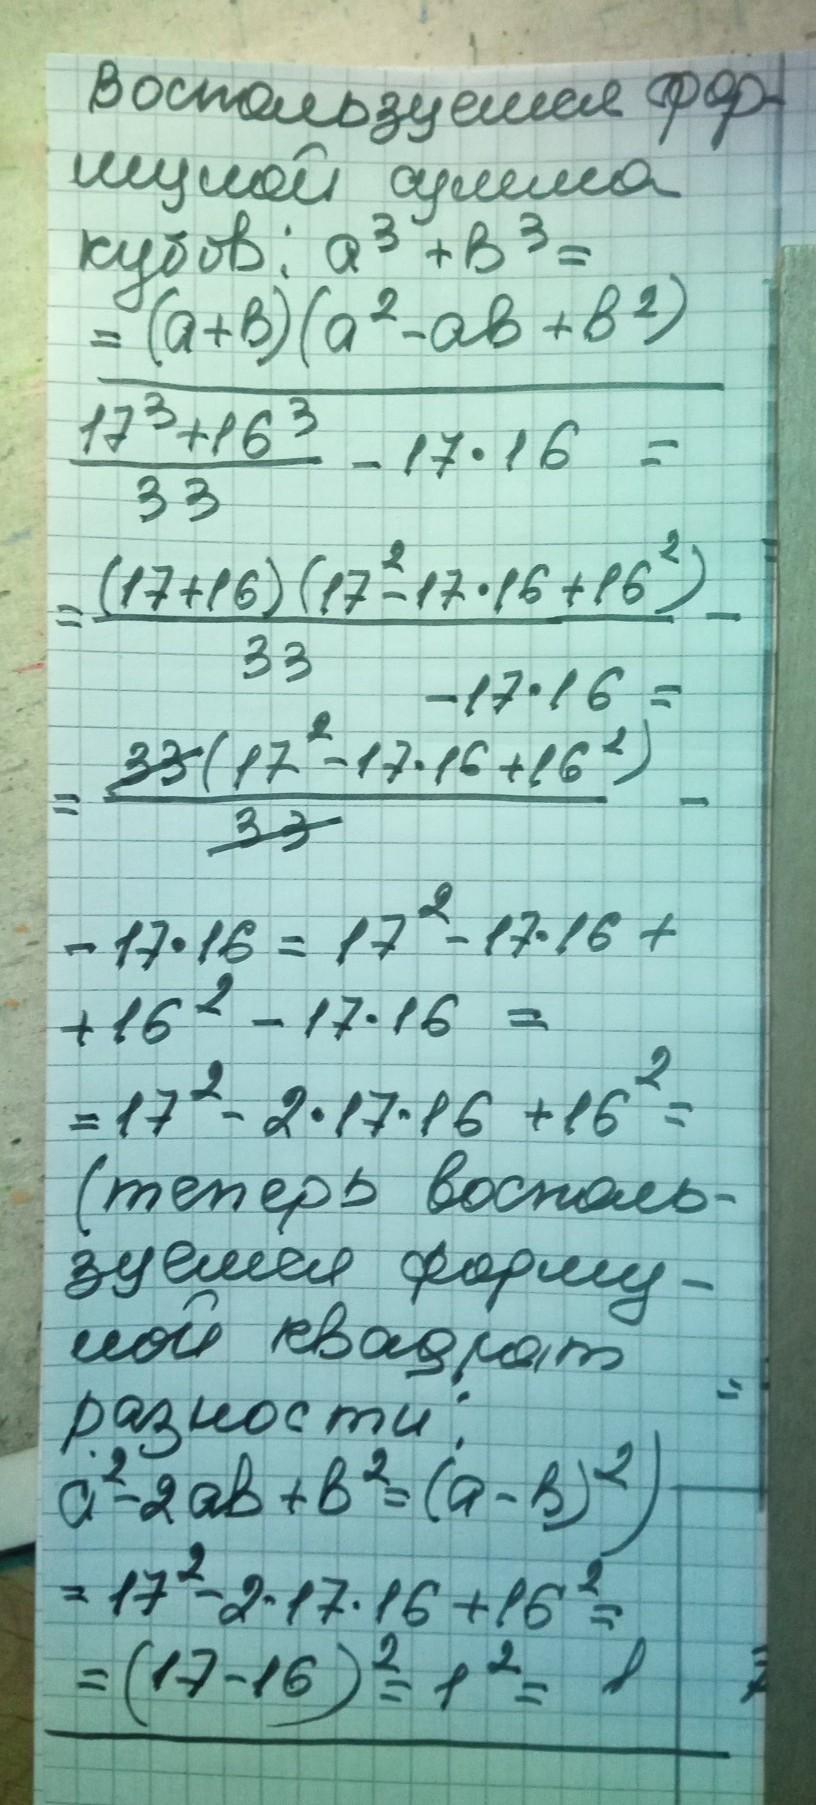 Воспользуемся фор-
мулой сумма
кубов: a³ + b³ =
= (a+b)(a² - ab + b²)
17³+16³
33
- 17·16 =
= (17+16)(17²-17·16+16²) -
33
-17·16 =
= 33(17²-17·16+16²) -
33
- 17·16 = 17² - 17·16 +
+ 16² - 17·16 =
= 17² - 2·17·16 + 16² =
(теперь восполь-
зуемся форму-
лой квадрат
разности:
a²-2ab+b²=(a-b)²)
= 17²-2·17·16+16²=
= (17-16)² = 1² = 1